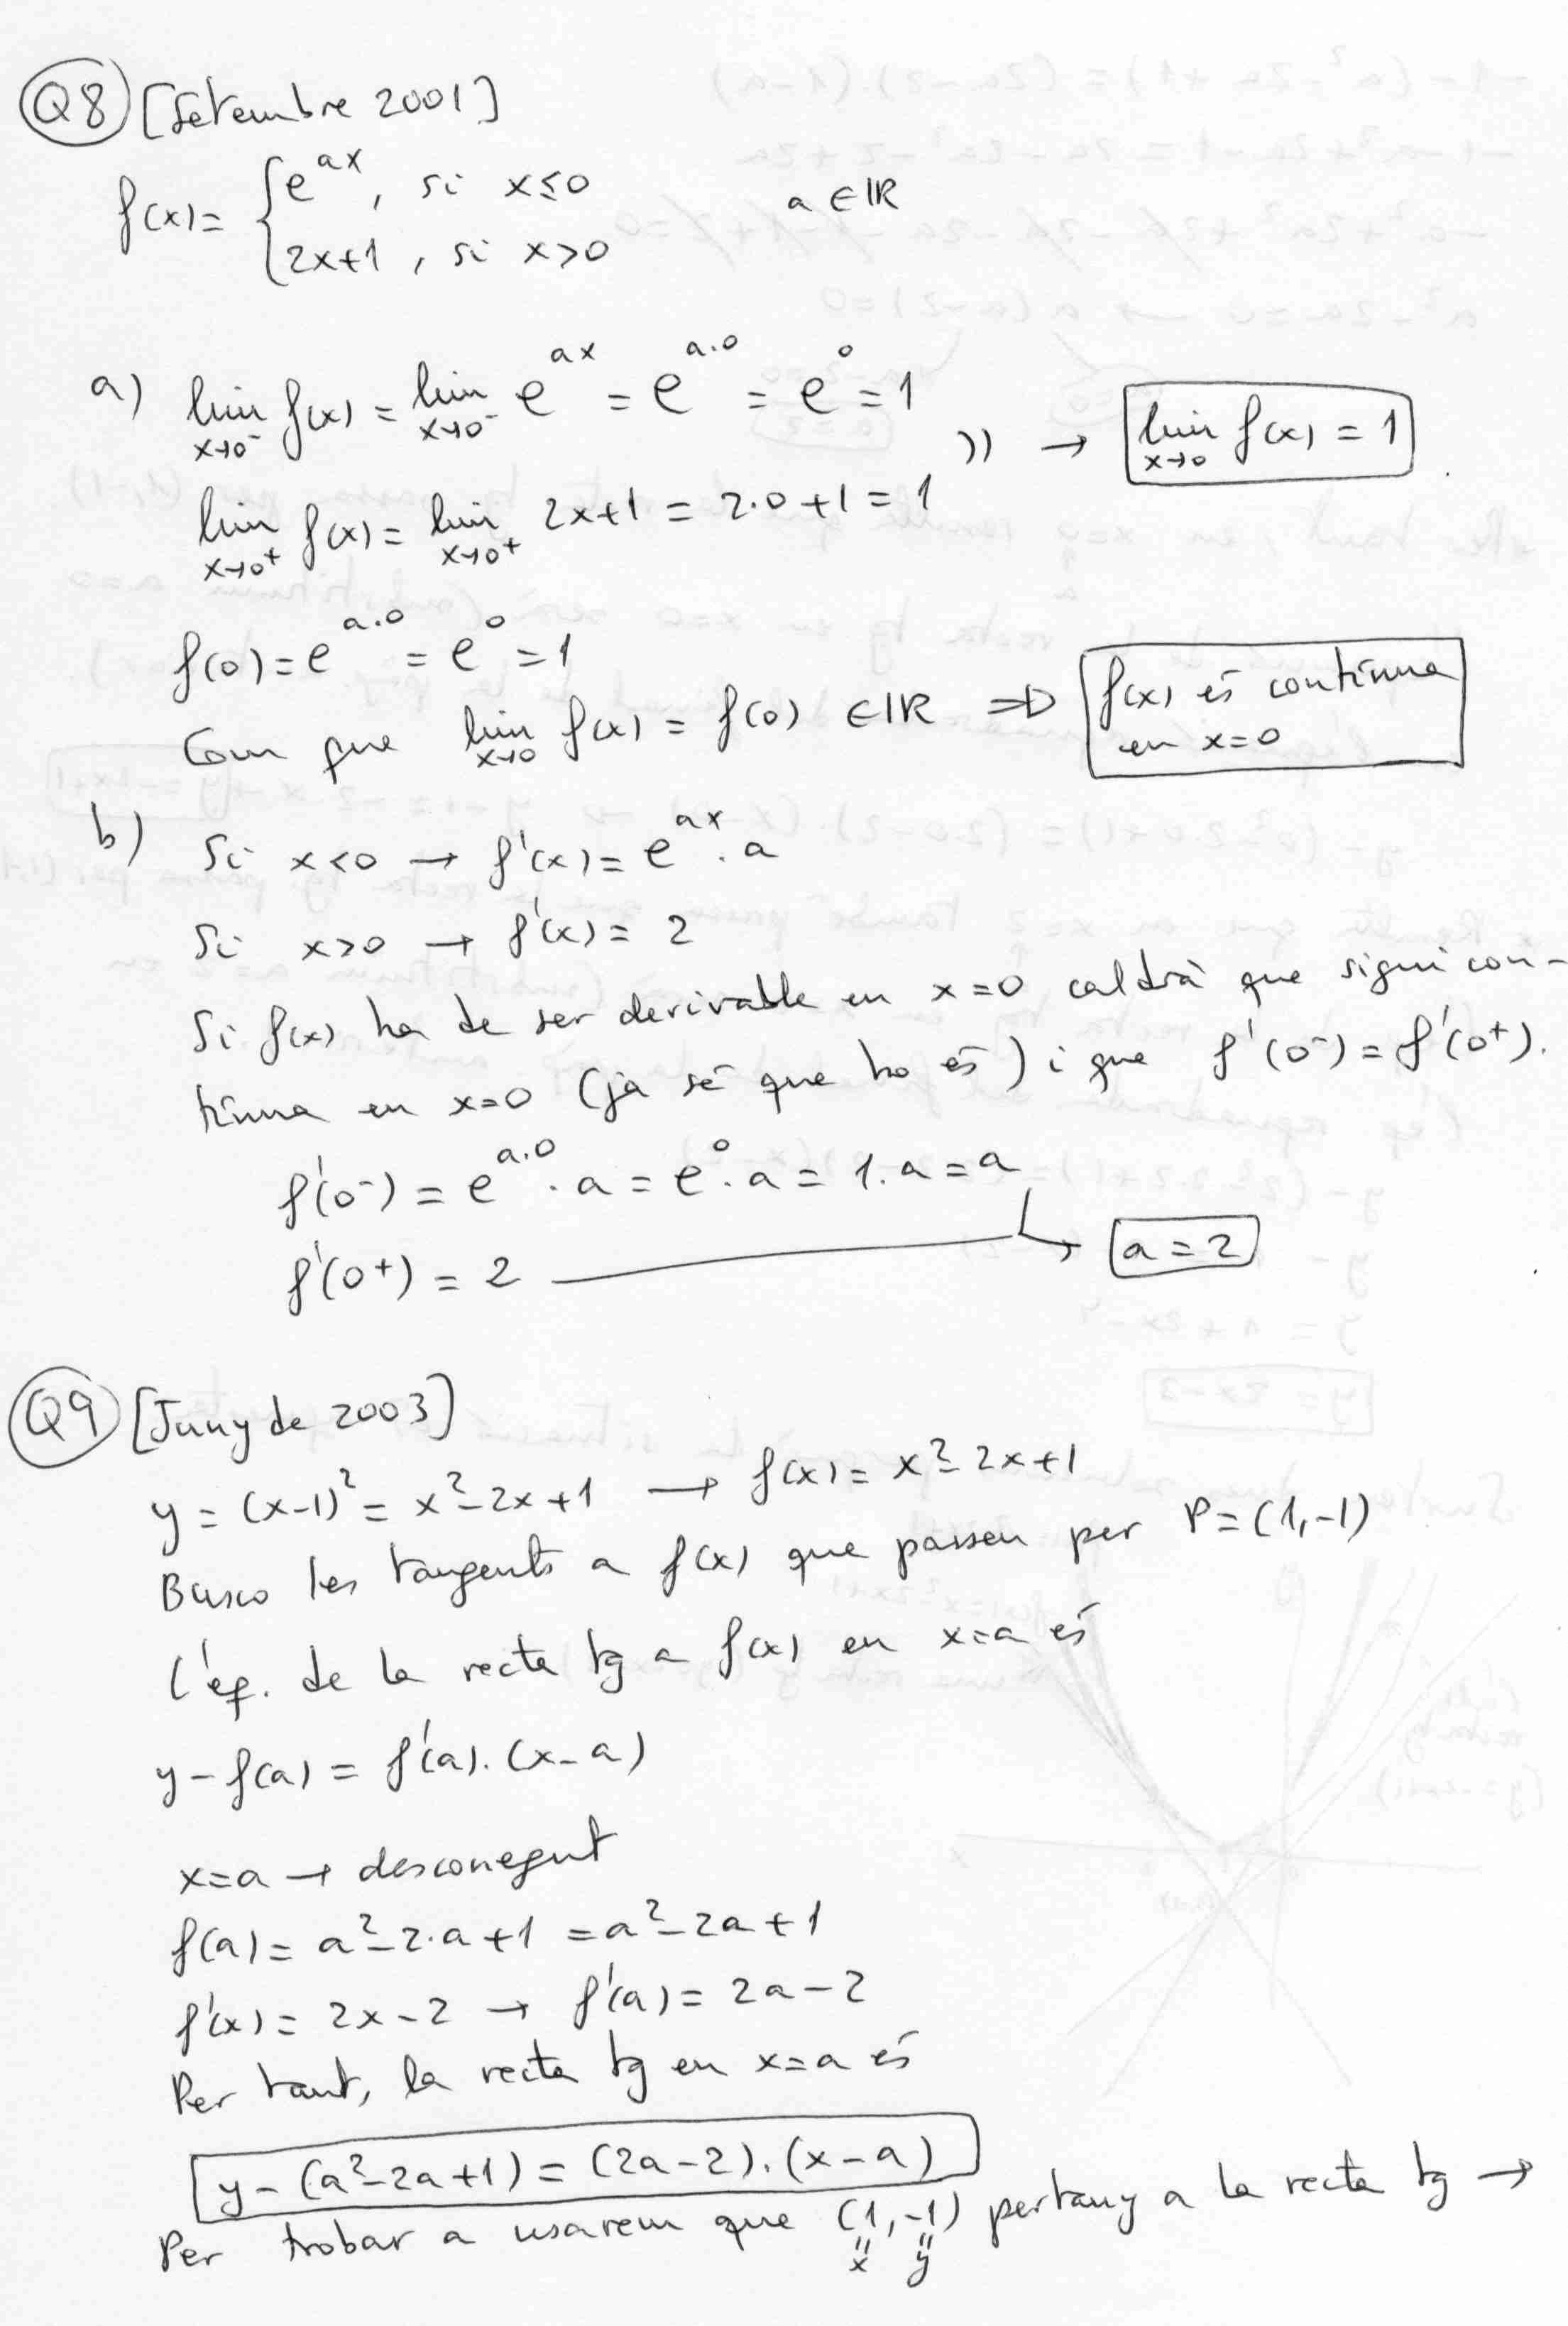 Q8 [Setembre 2001]
f(x) = { e^{ax}, si x≤0     a ∈ ℝ
2x+1, si x>0
a) lim_{x→0⁻} f(x) = lim_{x→0⁻} e^{ax} = e^{a·0} = e^0 = 1
)) → lim_{x→0} f(x) = 1
lim_{x→0⁺} f(x) = lim_{x→0⁺} 2x+1 = 2·0+1 = 1
f(0) = e^{a·0} = e^0 = 1
Com que lim_{x→0} f(x) = f(0) ∈ ℝ ⇒ f(x) és contínua
en x=0
b) Si x<0 → f'(x) = e^{ax}·a
Si x>0 → f'(x) = 2
Si f(x) ha de ser derivable en x=0 caldrà que sigui con-
tínua en x=0 (ja sé que ho és) i que f'(0⁻) = f'(0⁺).
f'(0⁻) = e^{a·0}·a = e^0·a = 1·a = a
f'(0⁺) = 2 → a = 2
Q9 [Juny de 2003]
y = (x-1)² = x²-2x+1 → f(x) = x²-2x+1
Busco les tangents a f(x) que passen per P=(1,-1)
L'eq. de la recta tg a f(x) en x=a és
y-f(a) = f'(a)·(x-a)
x=a → desconegut
f(a) = a²-2·a+1 = a²-2a+1
f'(x) = 2x-2 → f'(a) = 2a-2
Per tant, la recta tg en x=a és
y-(a²-2a+1) = (2a-2)·(x-a)
Per trobar a usarem que (1,-1) pertany a la recta tg →
" "
x y